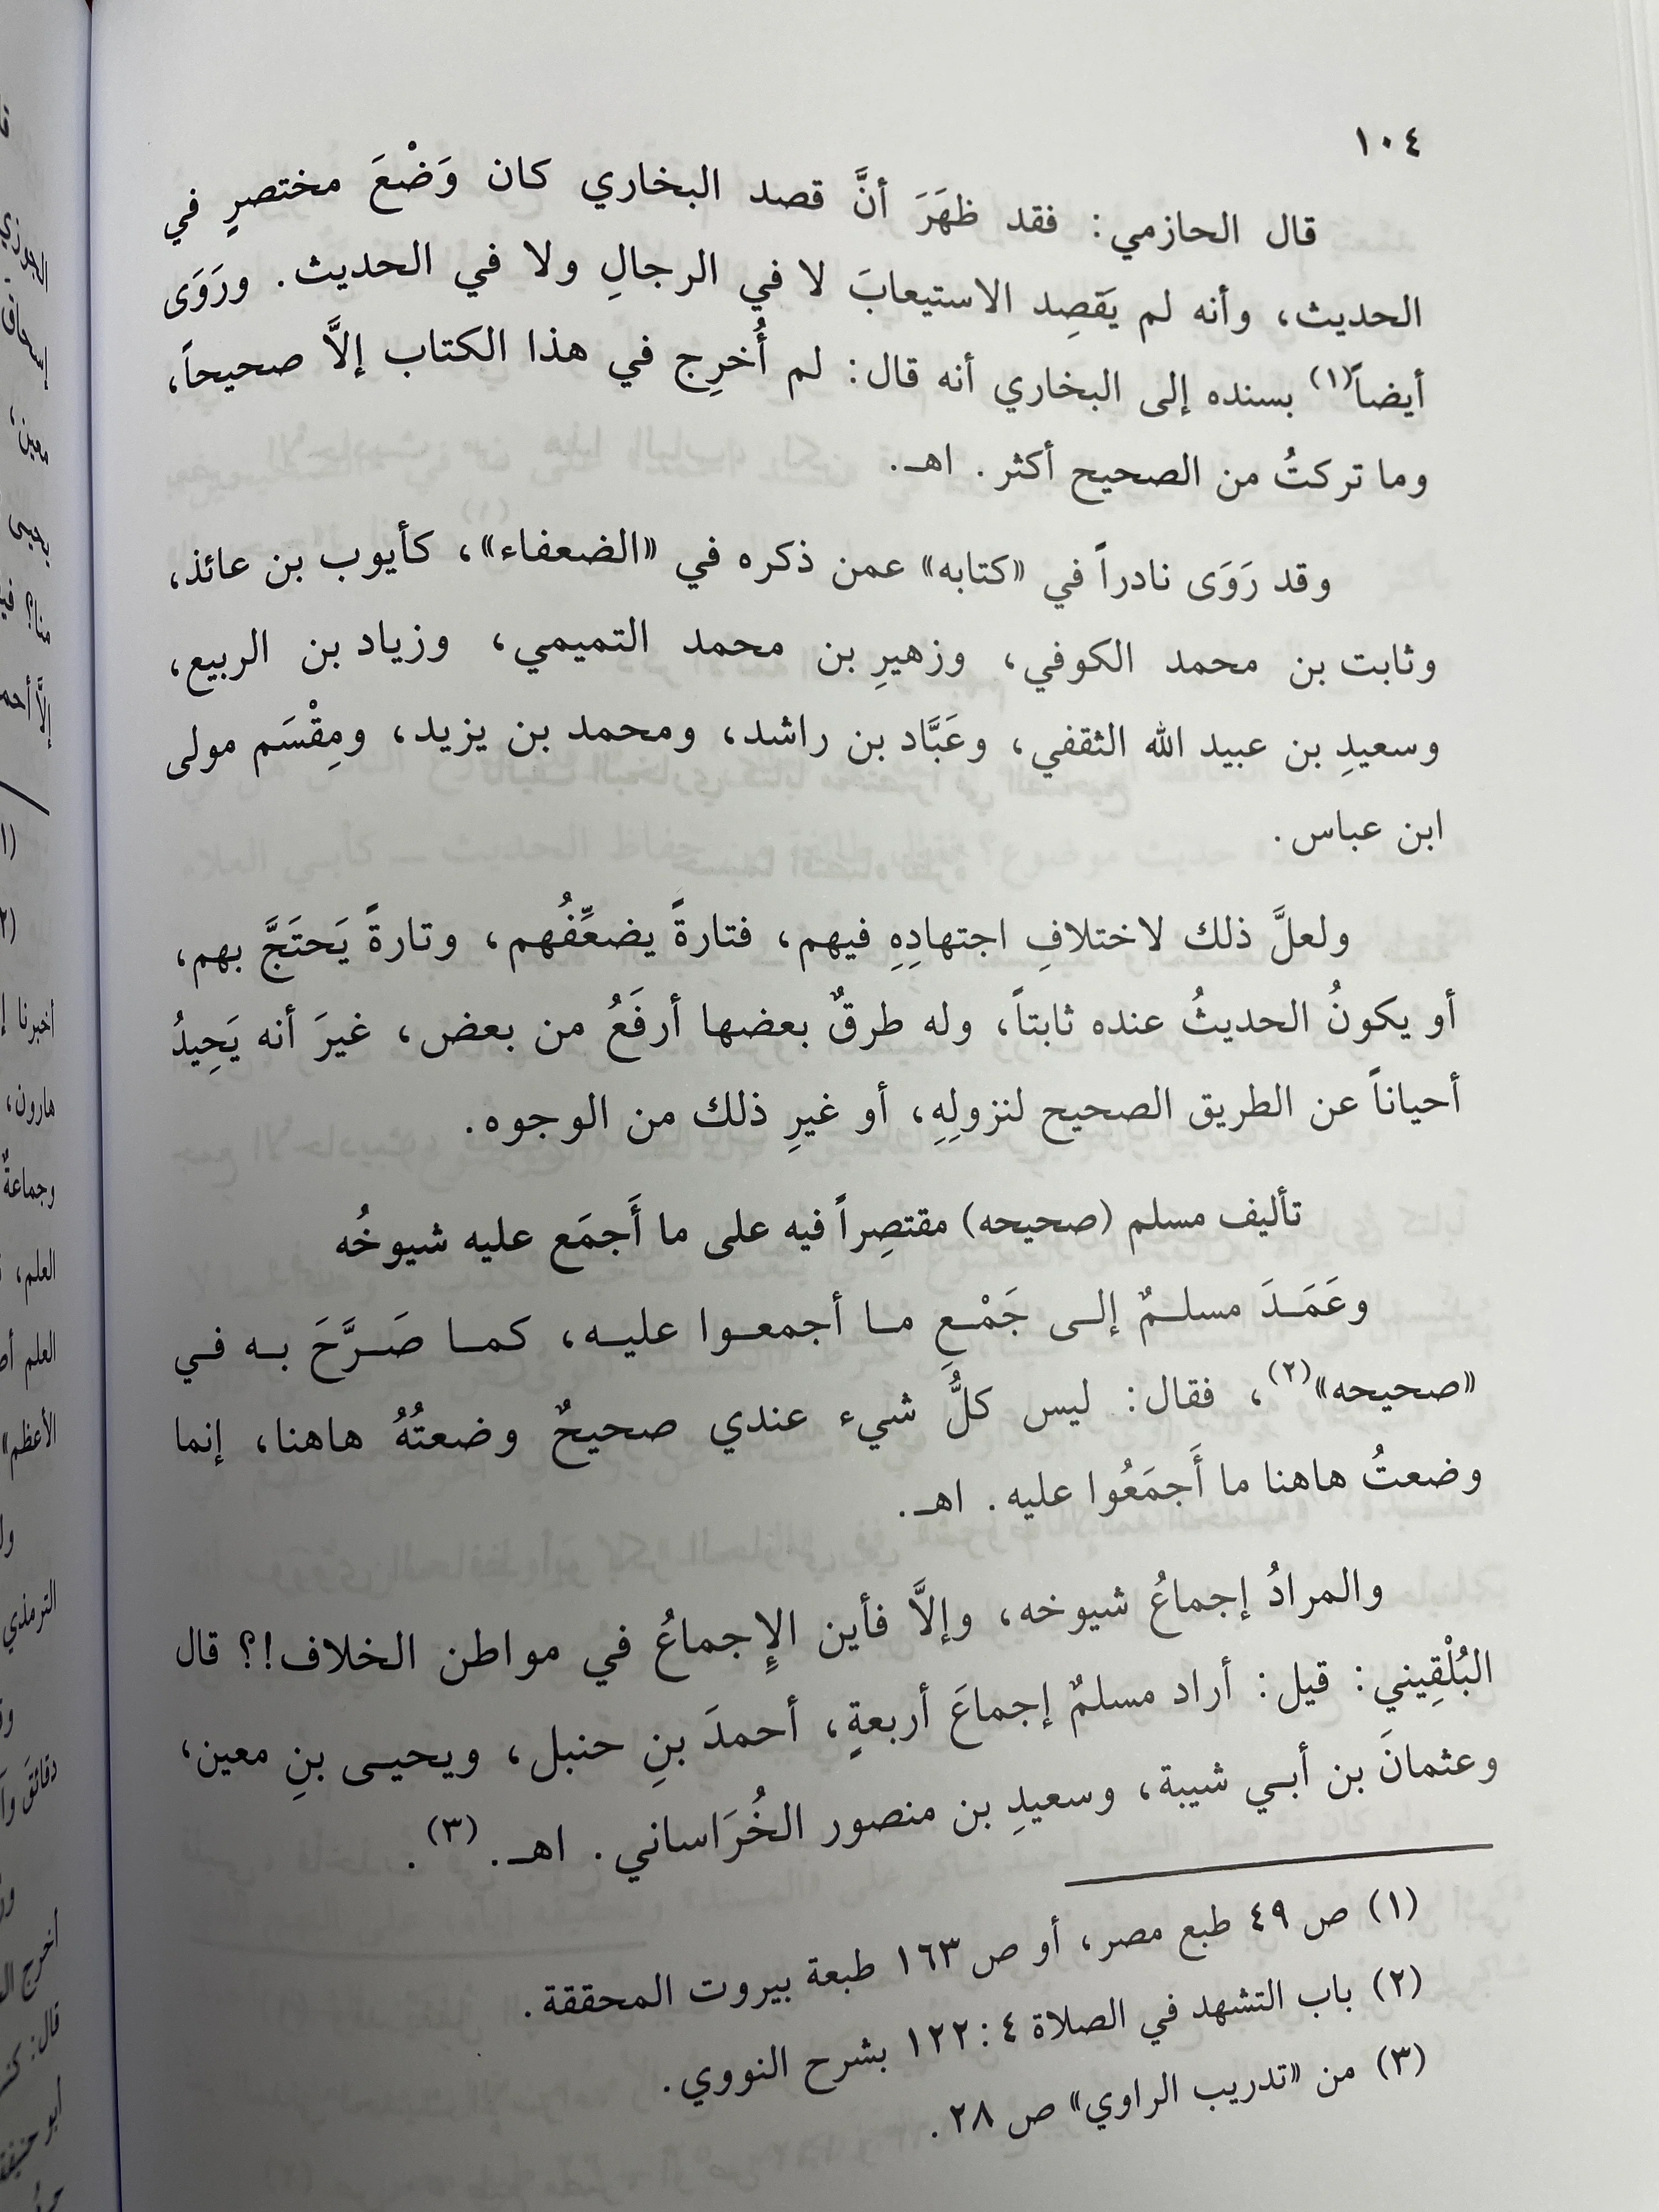 ١٠٤
قال الحازمي: فقد ظهَرَ أنَّ قصد البخاري كان وَضْعَ مختصرٍ في
الحديث، وأنه لم يَقصِد الاستيعابَ لا في الرجالِ ولا في الحديث. ورَوَى
أيضاً(١) بسنده إلى البخاري أنه قال: لم أُخرِج في هذا الكتاب إلَّا صحيحاً،
وما تركتُ من الصحيح أكثر. اهـ.
وقد رَوَى نادراً في «كتابه» عمن ذكره في «الضعفاء»، كأيوب بن عائذ،
وثابت بن محمد الكوفي، وزهيرِ بن محمد التميمي، وزياد بن الربيع،
وسعيدِ بن عبيد الله الثقفي، وعَبَّاد بن راشد، ومحمد بن يزيد، ومِقْسَم مولى
ابن عباس.
ولعلَّ ذلك لاختلافِ اجتهادِهِ فيهم، فتارةً يضعِّفُهم، وتارةً يَحتَجَّ بهم،
أو يكونُ الحديثُ عنده ثابتاً، وله طرقٌ بعضها أرفَعُ من بعض، غيرَ أنه يَحِيدُ
أحياناً عن الطريق الصحيح لنزولِهِ، أو غيرِ ذلك من الوجوه.
تأليف مسلم (صحيحه) مقتصِراً فيه على ما أَجمَع عليه شيوخُه
وعَمَدَ مسلمٌ إلى جَمْعِ ما أجمعوا عليه، كما صَرَّحَ به في
«صحيحه»(٢)، فقال: ليس كلُّ شيء عندي صحيحٌ وضعتُهُ هاهنا، إنما
وضعتُ هاهنا ما أَجمَعُوا عليه. اهـ.
والمرادُ إجماعُ شيوخه، وإلَّا فأين الإِجماعُ في مواطن الخلاف!؟ قال
البُلْقِيني: قيل: أراد مسلمٌ إجماعَ أربعةٍ، أحمدَ بنِ حنبل، ويحيى بنِ معين،
وعثمانَ بن أبي شيبة، وسعيدِ بن منصور الخُرَاساني. اهـ. (٣).
(١) ص ٤٩ طبع مصر، أو ص ١٦٣ طبعة بيروت المحققة.
(٢) باب التشهد في الصلاة ٤ : ١٢٢ بشرح النووي.
(٣) من «تدريب الراوي» ص ٢٨.